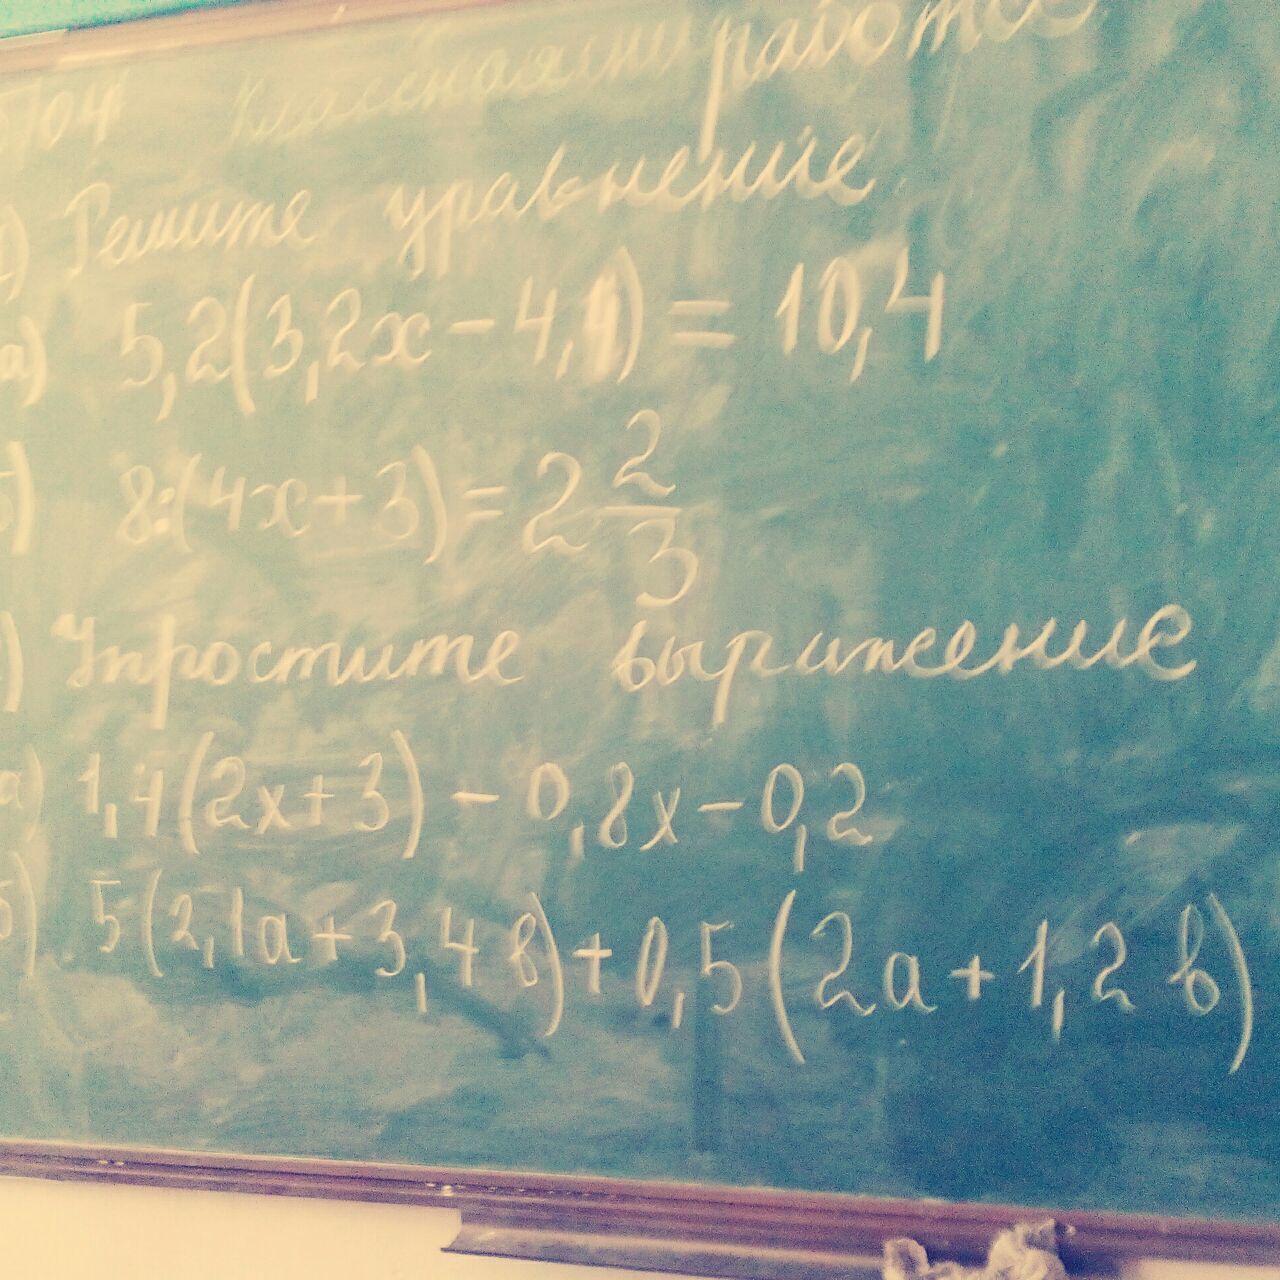 04 Классная работа
) Решите уравнение
а) 5,2(3,2х - 4,4) = 10,4
б) 8:(4х + 3) = 2 2/3
) Упростите выражение
а) 1,4(2х + 3) - 0,8х - 0,2
б) 5(2,1а + 3,4в) + 0,5(2а + 1,2в)